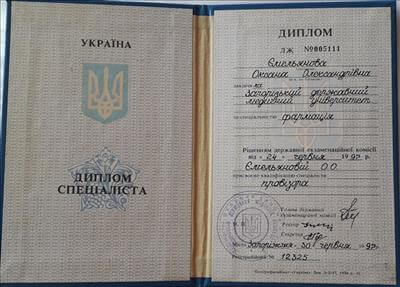 УКРАЇНА
ДИПЛОМ
СПЕЦІАЛІСТА
ДИПЛОМ
ЛЖ №005111
Ємельянова
Оксана Олександрівна
закінчила
Запорізький державний
медичний університет
за спеціальністю фармація
Рішенням державної екзаменаційної комісії
від "24" червня 1997р.
Ємельяновій О.О.
присвоєно кваліфікацію спеціаліста
провізора
Голова державної
екзаменаційної комісії
М. П. Ректор
Секретар
Місто Запоріжжя 30 червня 1997р.
Реєстраційний № 12325